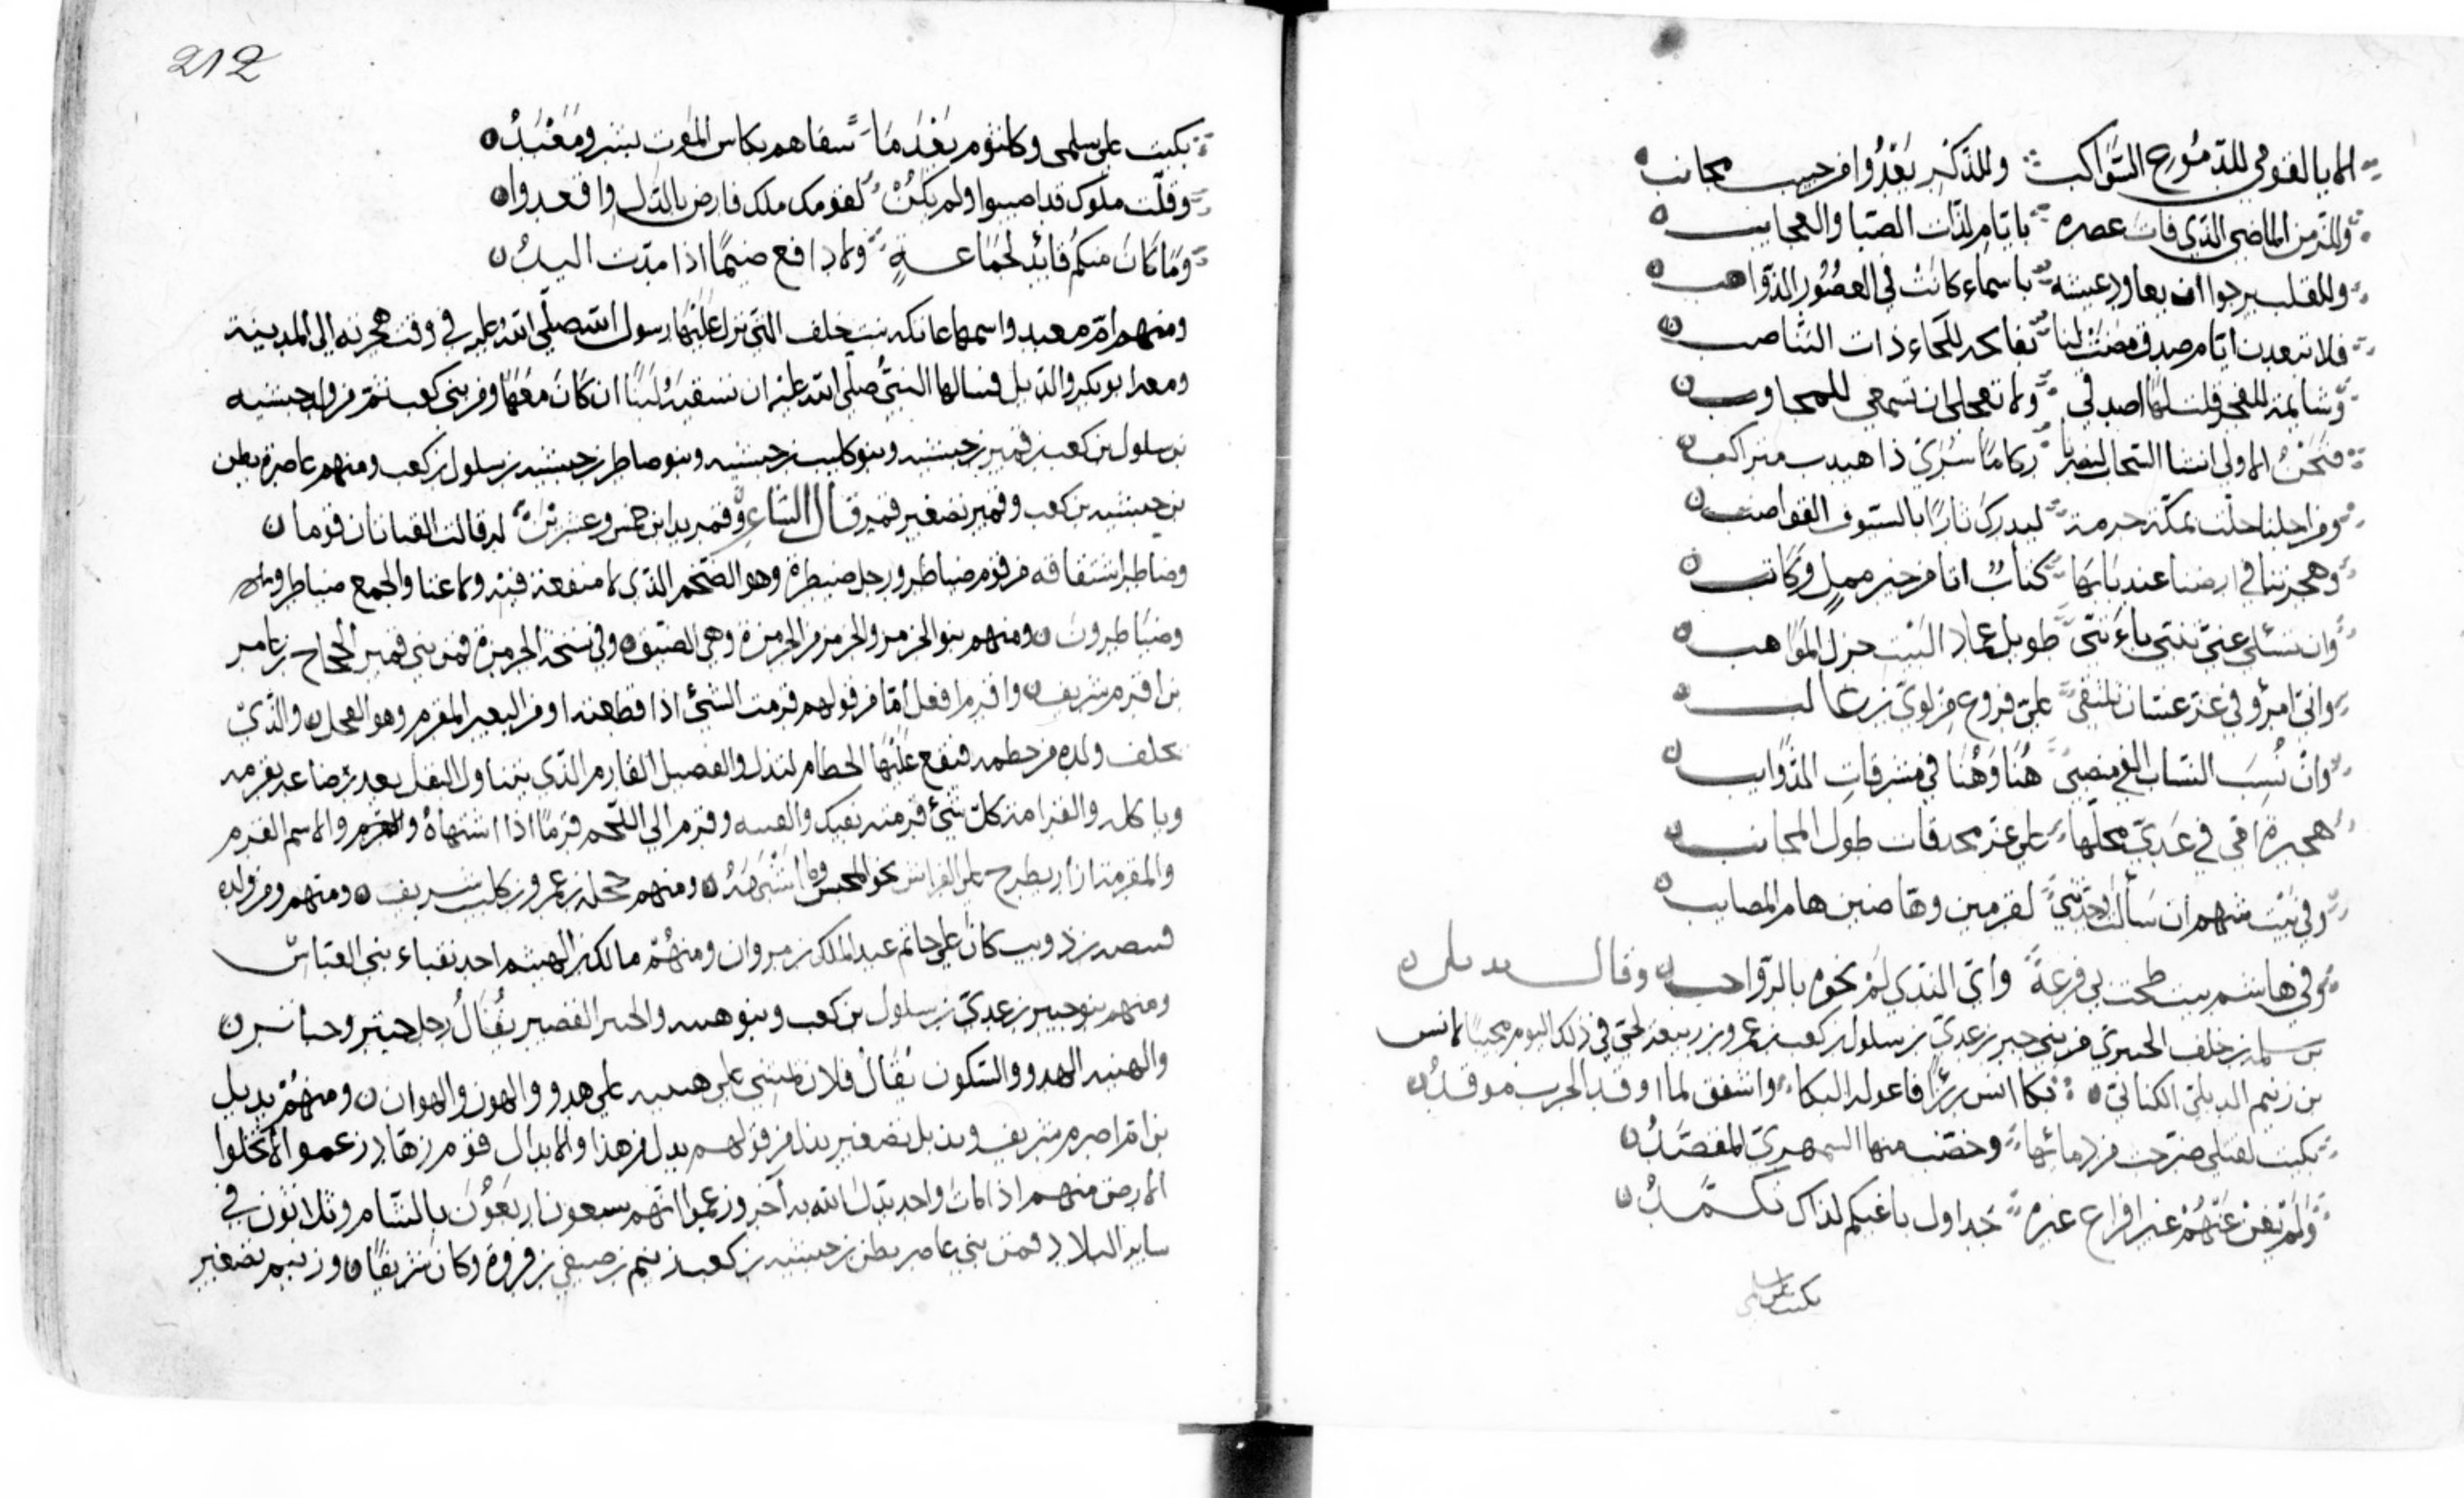 الا يا لقومي للدموع السواكب وللذكر بعدوا من حبيب مجانب
وللزمن الماضي الذي فات عصره بايام لذات الصبا والعجايب
وللقلب يرجوا ان يعاود عيشه باسماء كانت في العصور الذواهب
فلا تبعدن ايام صدق مضت لنا ذات التناصب
وشاتمة للفخر قلت لها اصدقي ولا تعجلي ان تسمعي للمجاوب
فنحن الاولى انشا السحاب لنصرنا ركاما سري ذا هيدب متراكب
ومن اجلنا حلت بمكة حرمة ليدرك ثارا بالسيوف القواضب
وهجرتنا في ارضنا عندنا بها كتاب اتا من خير ممل وكاتب
وان تسئلي عني تنبي بأنني طويل عماد البيت جزل المواهب
واني امرؤ في عز غسان تلتقي علي فروع من لوي بن غالب
وان نسب النساب الفي منصبي هنا وهنا في مشرفات الذوايب
هجيرة امي في عدي محلها على عز طول المجانب
وفي بيت سهم ان سألت وجدتني لقرمين وهاصين هام المصايب
وفي هاشم بيت طمت بي فرعة وأي الندي لم نحوه بالرواحب وقال بديل
بن سلمة بن خلف الحبتري من بني حبتر بن عدي بن سلول بن كعب بن عمرو بن ربيعة لحي في ذلك اليوم مجيبا لانس
بن زنيم الديلي الكناني بكا انس رزنا فاعوله البكا واشفق لما اوقد الحرب موقد
بكيت لقتلى ضرجت من دمائها وخضب منها السمهري المقصد
ولم تغن عنهم غير افراع جداول
بكيت على سلمى
212
بكيت على سلمى وكلثوم بعدما سقاهم بكاس الموت بشر ومعبد
وقلت ملوك قد اصيبوا ولم يكن لقومك ملك فارض بالذل واقعدوا
وما كان منكم قائد لجماعة ولا دافع ضيما اذا مدت اليد
ومنهم ام معبد واسمها عاتكة بنت خلف التي نزل عليها رسول الله صلى الله عليه في وقت هجرته الى المدينة
ومعه ابو بكر والديل فسالها النبي صلى الله عليه ان تسقيه لبنا ان كان معها ومن بني كعب ثم من ولد حبشيه
بن سلول بن كعب قمير بن حبشيه وبنو كليب بن حبشيه وبنو ضاطر بن حبشيه بن سلول بن كعب ومنهم غاضرة بطن
بن حبشيه بن كعب وقمير تصغير قمر قال الشاعر وقمير بدا ابن خمس وعشرين له قالت الفتاتان قوما
وضاطر اشتقاقه من قوم ضياطر ورجل ضيطرة وهو الضخم الذي لا منفعة فيه ولا غنا والجمع ضياطر
وضياطرون ومنهم بنو الحزمر والحزمر من الحزمرة وهي الضيق وفي نسخة الحرمزة فمن بني قمير الحجاج بن عامر
بن اقرم شريف واقرم افعل اما من قولهم قرمت الشئ اذا قطعته او من البعير المقرم وهو الفحل والذي
ولده من خطمه فتقع عليها الخطام لتذل والفصيل القارم الذي يتناول البقل بعد رضاعه يقرمه
وياكل والقرامة كل شئ قرمته بفيك وقرم الى اللحم قرما اذا اشتهاه والاسم القرم
والمقرمة ازار يطرح على الفراش نحو المحبس وما اشبهه ومنهم حجل بن عمرو بن كليب شريف ومنهم ومن ولده
قبيصه بن ذويب كان علي خاتم عبد الملك بن مروان ومنهم مالك بن الهيثم احد نقباء بني العباس
ومنهم بنو حبتر بن عدي بن سلول بن كعب وبنو هينه والحبتر القصير يقال رجل حبتر وحباتر
والهينه الهدوو والسكون يقال فلان يمشي على هينه على هدوو والهون والهوان ومنهم بديل
بن ام اصرم شريف وبديل تصغير بدل من قولهم بدل من هذا والابدال قوم زهاد زعموا الا تخلوا
الارض منهم اذا مات واحد بدل الله به آخر وزعموا انهم سبعون اربعون بالشام وثلاثون في
ساير البلاد فمن بني غاضر بطن بن حبشيه بن كعب زنيم بن صيفي بن فروة وكان شريفا وزنيم تصغير